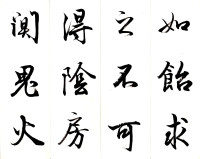 如飴求
之不可
得陰房
闃鬼火